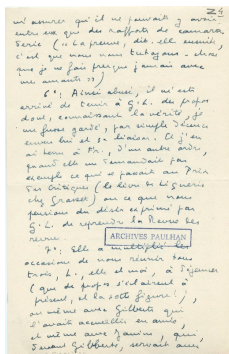 m'assurer qu'il ne pouvait y avoir
entre eux que des rapports de camara-
derie (« La preuve, dit-elle ensuite,
c'est que nous nous tutoyons - chose
que je ne fais presque jamais avec
mes amants »)
6°) Ainsi abusé, il m'est
arrivé de tenir à G.L. des propos
dont, connaissant la vérité, je
me fusse gardé, par simple décence
envers lui et sa liaison. Et j'en
ai tenu à
quand elle me demandait par
exemple ce qui se passait au Prix
des Critiques (le livre de
chez Grasset) ou ce que nous
pensions du désir exprimé par
G.L. de reprendre la Revue
revue.
ARCHIVES PAULHAN
7°) Elle a multiplié les
occasions de nous réunir tous
trois, L., elle et moi, à déjeuner
(que de propos
présent, et la sotte figure!),
ou même avec Gilberte qui
l'avait accueillie en amie
et même avec Janine qui,
devant Gilberte, servait ainsi